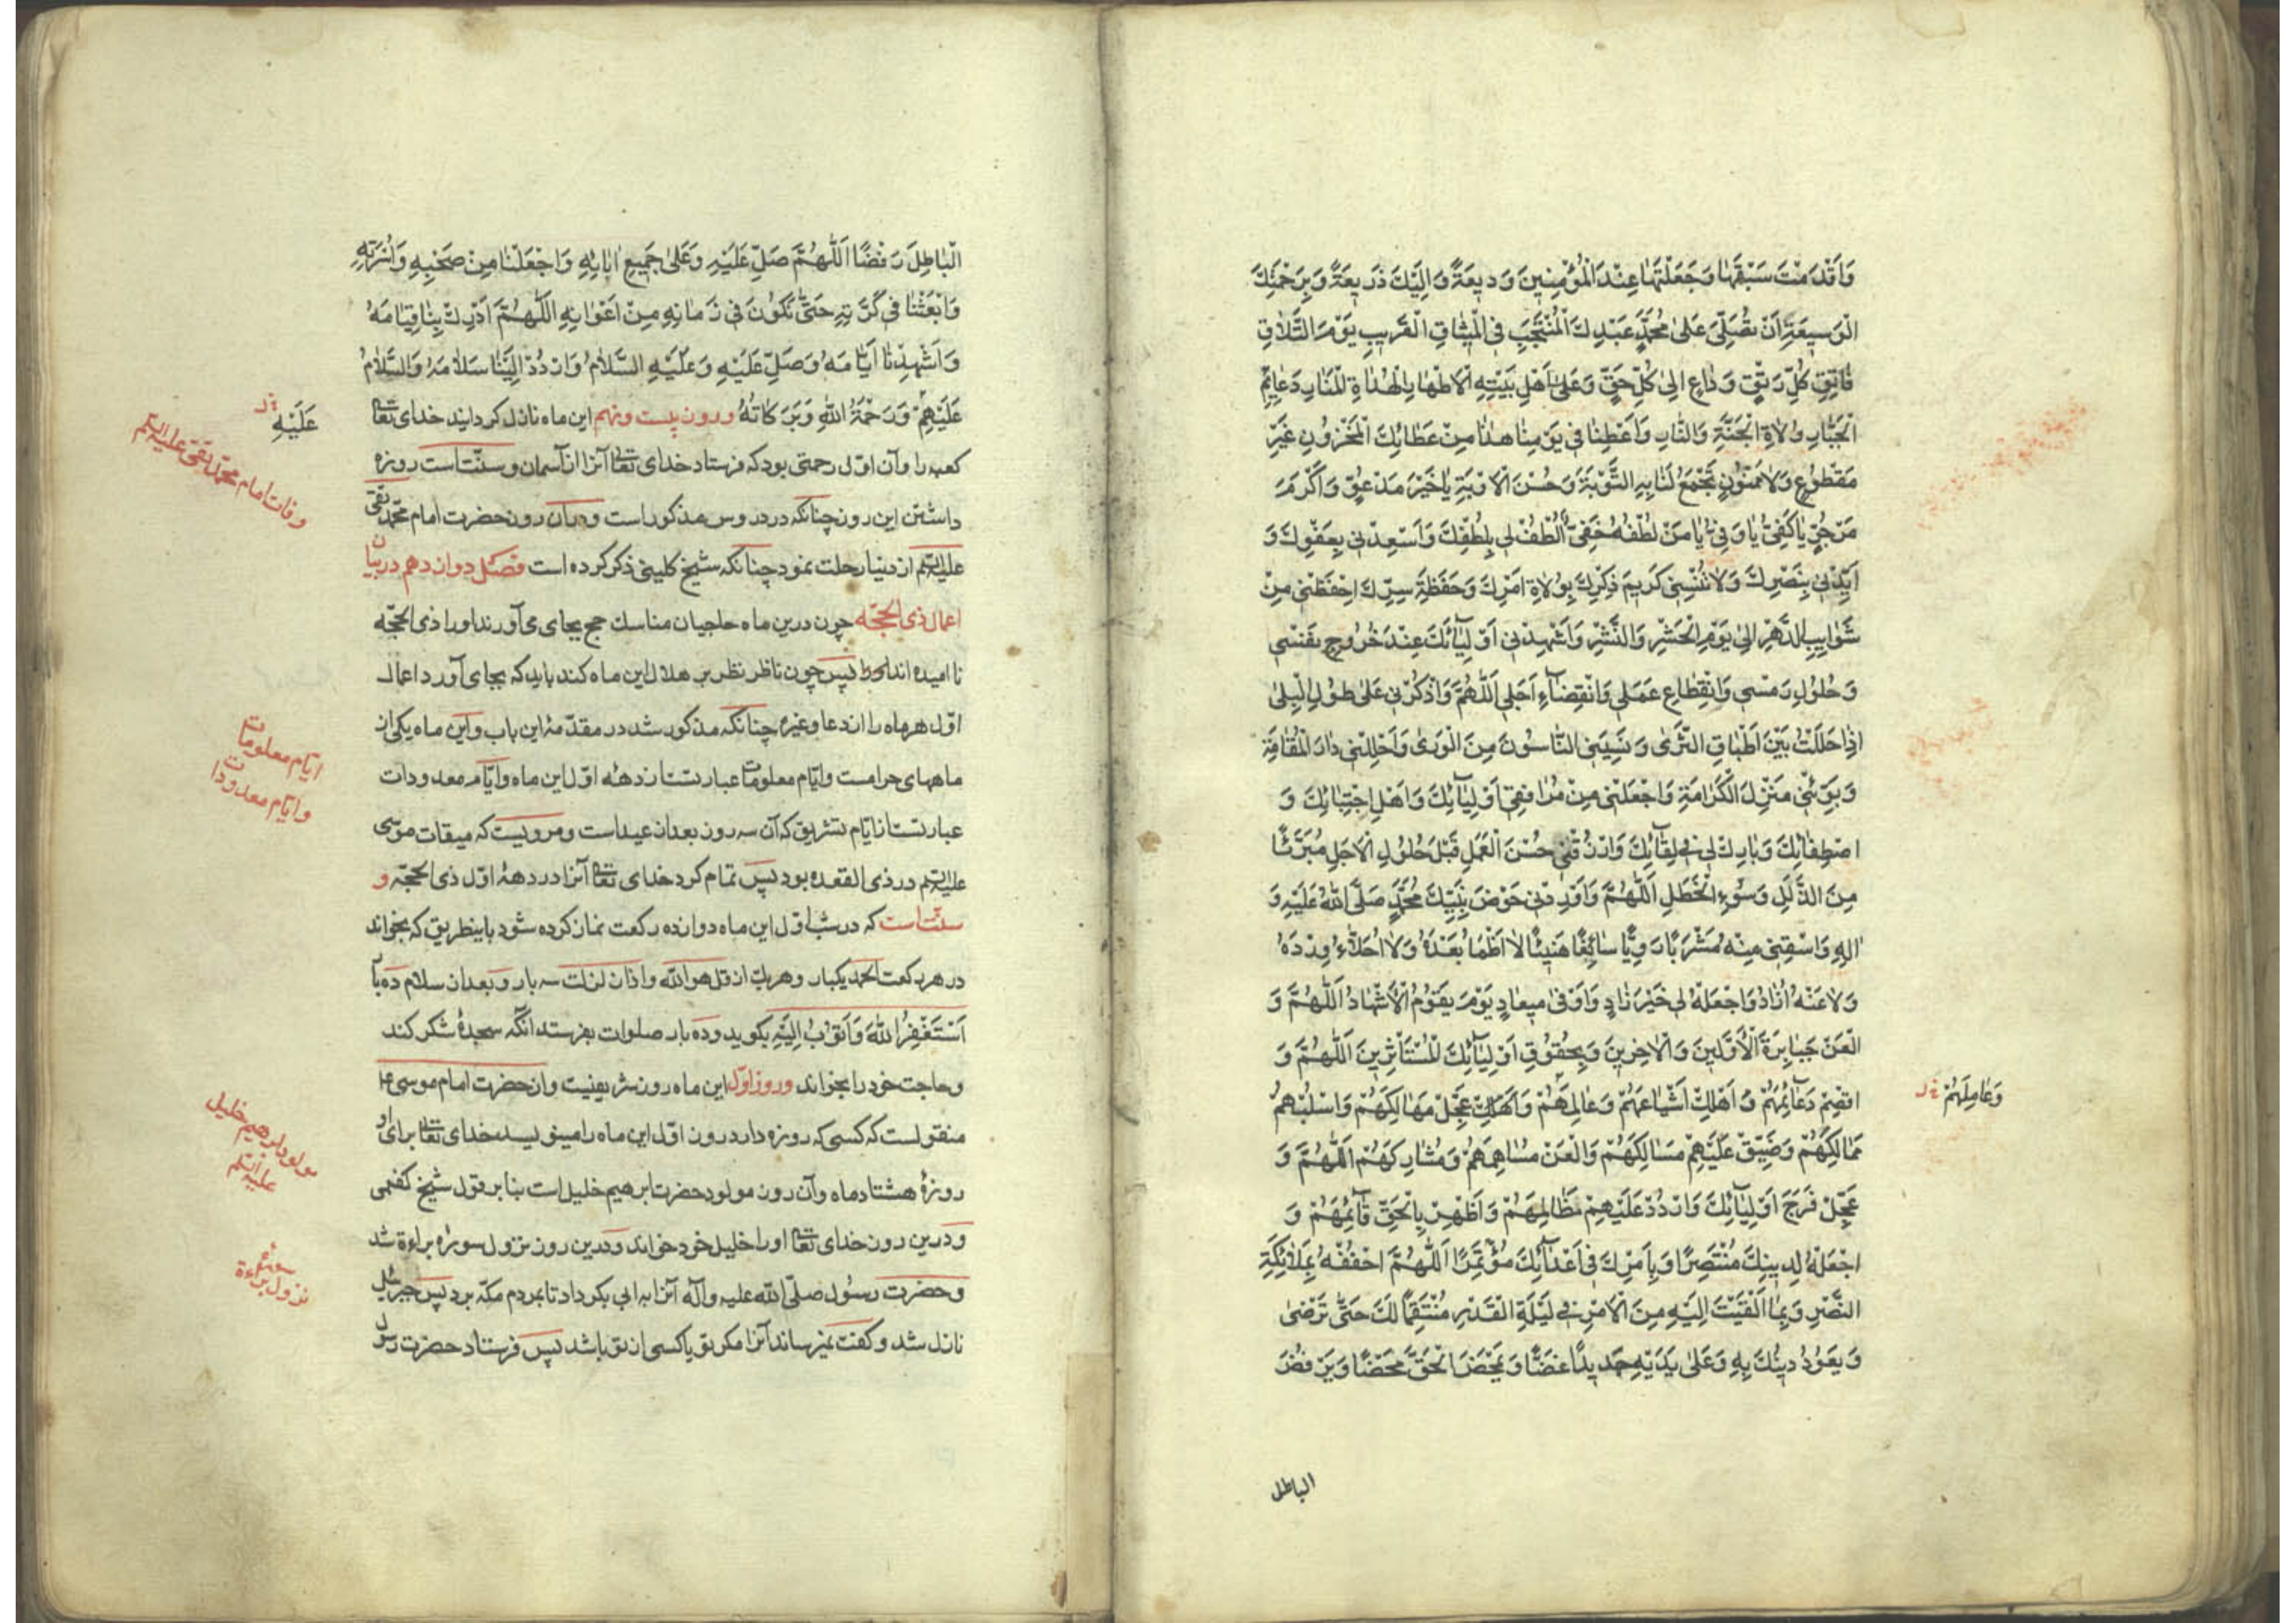 وَاَقْدَمْتَ سَبْقَهٰا وَجَعَلْتَهٰا عِنْدَ الْمُؤْمِنِينَ وَدِيعَةً وَاِلَيْكَ ذَرِيعَةً وَبِرَحْمَتِكَ
الْوَسِيعَةِ اَنْ تُصَلِّىَ عَلىٰ مُحَمَّدٍ عَبْدِكَ الْمُنْتَجَبِ فِى الْمِيثٰاقِ الْقَرِيبِ يَوْمَ التَّلٰاقِ
فٰاتِقِ كُلِّ رَتْقٍ وَدٰاعٍ اِلىٰ كُلِّ حَقٍّ وَعَلىٰ اَهْلِ بَيْتِهِ الْاَطْهٰارِ الْهُدٰاةِ الْمَنٰارِ دَعٰائِمِ
الْجَبّٰارِ وُلٰاةِ الْجَنَّةِ وَالنّٰارِ وَاَعْطِنٰا فِى يَوْمِنٰا هٰذٰا مِنْ عَطٰائِكَ الْمَخْزُونِ غَيْرَ
مَقْطُوعٍ وَلٰا مَمْنُونٍ تَجْمَعُ لَنٰا بِهِ التَّوْبَةَ وَحُسْنَ الْاَوْبَةِ يٰا خَيْرَ مَدْعُوٍّ وَاَكْرَمَ
مَرْجُوٍّ يٰا كَفِىُّ يٰا وَفِىُّ يٰا مَنْ لُطْفُهُ خَفِىٌّ اُلْطُفْ لِى بِلُطْفِكَ وَاَسْعِدْنِى بِعَفْوِكَ وَ
اَيِّدْنِى بِنَصْرِكَ وَلٰا تُنْسِنِى كَرِيمَ ذِكْرِكَ بِوُلٰاةِ اَمْرِكَ وَحَفَظَةِ سِرِّكَ اِحْفَظْنِى مِنْ
شَوٰائِبِ الدَّهْرِ اِلىٰ يَوْمِ الْحَشْرِ وَالنَّشْرِ وَاَشْهِدْنِى اَوْلِيٰآئَكَ عِنْدَ خُرُوجِ نَفْسِى
وَحُلُولِ رَمْسِى وَانْقِطٰاعِ عَمَلِى وَانْقِضٰآءِ اَجَلِى اَللّٰهُمَّ وَاذْكُرْنِى عَلىٰ طُولِ الْبِلىٰ
اِذٰا حَلَلْتُ بَيْنَ اَطْبٰاقِ الثَّرىٰ وَنَسِيَنِى النّٰاسُونَ مِنَ الْوَرىٰ وَاَحْلِلْنِى دٰارَ الْمُقٰامَةِ
وَبَوِّئْنِى مَنْزِلَ الْكَرٰامَةِ وَاجْعَلْنِى مِنْ مُرٰافِقِى اَوْلِيٰآئِكَ وَاَهْلِ اجْتِبٰائِكَ وَ
اصْطِفٰائِكَ وَبٰارِكْ لِى فِى لِقٰآئِكَ وَارْزُقْنِى حُسْنَ الْعَمَلِ قَبْلَ حُلُولِ الْاَجَلِ مُبَرَّئًا
مِنَ الزَّلَلِ وَسُوءِ الْخَطَلِ اَللّٰهُمَّ وَاَوْرِدْنِى حَوْضَ نَبِيِّكَ مُحَمَّدٍ صَلَّى اللّٰهُ عَلَيْهِ وَ
اٰلِهِ وَاسْقِنِى مِنْهُ مَشْرَبًا رَوِيًّا سٰائِغًا هَنِيئًا لٰا اَظْمَأُ بَعْدَهُ وَلٰا اُحَلَّاُ وِرْدَهُ
وَلٰا عَنْهُ اُذٰادُ وَاجْعَلْهُ لِى خَيْرَ زٰادٍ وَاَوْفىٰ مِيعٰادٍ يَوْمَ يَقُومُ الْاَشْهٰادُ اَللّٰهُمَّ وَ
الْعَنْ جَبٰابِرَةَ الْاَوَّلِينَ وَالْاٰخِرِينَ وَبِحُقُوقِ اَوْلِيٰآئِكَ الْمُسْتَأْثِرِينَ اَللّٰهُمَّ وَ
اقْصِمْ دَعٰآئِمَهُمْ وَ اَهْلِكْ اَشْيٰاعَهُمْ وَعٰالِمَهُمْ وَعَجِّلْ مَهٰالِكَهُمْ وَاسْلُبْهُمْ
وَعٰامِلَهُمْ
مَمٰالِكَهُمْ وَضَيِّقْ عَلَيْهِمْ مَسٰالِكَهُمْ وَالْعَنْ مُسٰاهِمَهُمْ وَمُشٰارِكَهُمْ اَللّٰهُمَّ وَ
عَجِّلْ فَرَجَ اَوْلِيٰآئِكَ وَارْدُدْ عَلَيْهِمْ مَظٰالِمَهُمْ وَاَظْهِرْ بِالْحَقِّ قٰآئِمَهُمْ وَ
اجْعَلْهُ لِدِينِكَ مُنْتَصِرًا وَبِاَمْرِكَ فِى اَعْدٰآئِكَ مُؤْتَمِرًا اَللّٰهُمَّ احْفُفْهُ بِمَلٰائِكَةِ
النَّصْرِ وَبِمٰا اَلْقَيْتَ اِلَيْهِ مِنَ الْاَمْرِ فِى لَيْلَةِ الْقَدْرِ مُنْتَقِمًا لَكَ حَتّٰى تَرْضىٰ
وَيَعُودُ دِينُكَ بِهِ وَعَلىٰ يَدَيْهِ جَدِيدًا غَضًّا وَيَمْحَضَ الْحَقَّ مَحْضًا وَيَرْفُضَ
الباطل
الْبٰاطِلَ رَفْضًا اَللّٰهُمَّ صَلِّ عَلَيْهِ وَعَلىٰ جَمِيعِ اٰبٰائِهِ وَاجْعَلْنٰا مِنْ صَحْبِهِ وَاُسْرَتِهِ
وَابْعَثْنٰا فِى كَرَّتِهِ حَتّٰى نَكُونَ فِى زَمٰانِهِ مِنْ اَعْوٰانِهِ اَللّٰهُمَّ اَدْرِكْ بِنٰا قِيٰامَهُ
وَاَشْهِدْنٰا اَيّٰامَهُ وَصَلِّ عَلَيْهِ وَعَلَيْهِ السَّلٰامُ وَارْدُدْ اِلَيْنٰا سَلٰامَهُ وَالسَّلٰامُ
عَلَيْهِمْ وَرَحْمَةُ اللّٰهِ وَبَرَكٰاتُهُ وروز بیست ونهم این ماه نازل کردانید خدای تعالی
عَلَيْهِ
وفات امام محمد تقی علیه السلم
کعبه را وآن اوّل رحمتی بود که فرستاد خدای تعالی آنرا از آسمان وسنّت است روزه
داشتن این روز چنانکه در دروس مذکور است ودر آن روز حضرت امام محمّد تقی
علیه السلم از دنیا رحلت نمود چنانکه شیخ کلینی ذکر کرده است فصل دوازدهم در بیان
اعمال ذی الحجّه چون درین ماه حاجیان مناسك حج بجای می آورند اورا ذی الحجّه
نامیده اند پس چون ناظر نظر بر هلال این ماه کند باید که بجای آورد اعمال
اوّل هر ماه را از دعا وغیره چنانکه مذکور شد در مقدّمۀ این باب واین ماه یکی از
ایّام معلومات
وایّام معدودات
ماههای حرامست وایّام معلومات عبارتست از دهۀ اوّل این ماه وایّام معدودات
عبارتست از ایّام تشریق که آن سه روز بعد از عید است ومرویست که میقات موسی
علیه السلم در ذی القعده بود پس تمام کرد خدای تعالی آنرا در دهۀ اوّل ذی الحجّه و
سنّت است که در شب اوّل این ماه دوازده رکعت نماز کرده شود باینطریق که بخواند
در هر رکعت الحمد یکبار وهر یك از قل هو الله واذا نزلت سه بار وبعد از سلام ده بار
اَسْتَغْفِرُ اللّٰهَ وَاَتُوبُ اِلَيْهِ بکوید وده بار صلوات بفرستد انکه سجدۀ شکر کند
وحاجت خود را بخواند وروز اوّل این ماه روز شریفیست واز حضرت امام موسی ع
مولود ابرهیم خلیل
علیه السلم
منقولست که کسی که روزه دارد روز اوّل این ماه را مینویسد خدای تعالی برای او
روزۀ هشتاد ماه وآن روز مولود حضرت ابرهیم خلیل است بنا بر قول شیخ کفعمی
ودرین روز خدای تعالی اورا خلیل خود خواند ودرین روز نزول سورۀ براءة شد
نزول سورۀ براءة
وحضرت رسُول صلّی الله علیه وآله آنرا به ابی بکر داد تا بمردم مکّه برد پس جبرئیل
نازل شد وکفت نمیرساند آنرا مکر تو یا کسی از تو باشد پس فرستاد حضرت رسول